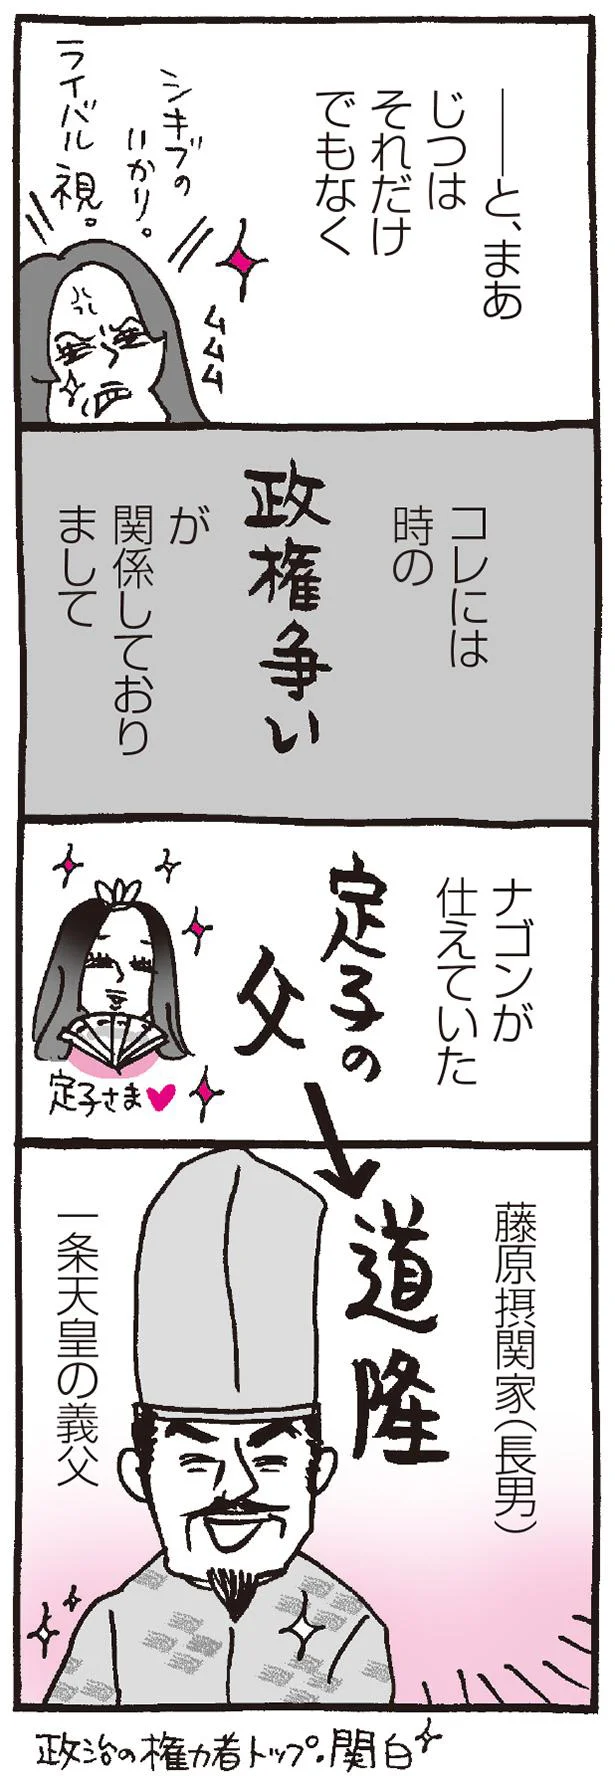 ――と、まあ
じつは
それだけ
でもなく
シキブの
いかり。
ライバル視。
ムムム
コレには
時の
政権争い
が
関係しており
まして
ナゴンが
仕えていた
定子の
父
定子さま♥
藤原摂関家（長男）
道隆
一条天皇の義父
政治の権力者トップ。関白